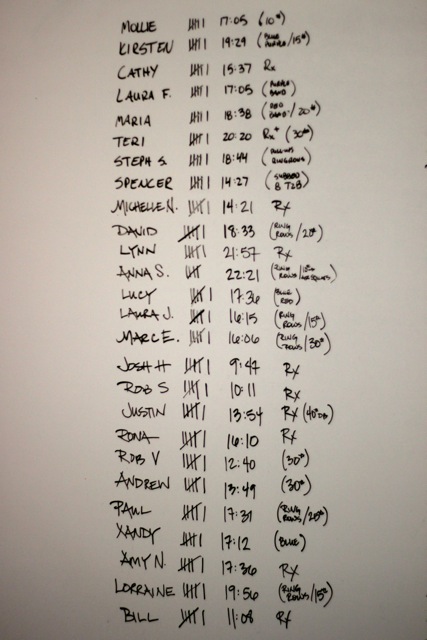 MOLLIE 17:05 (10#)
KIRSTEN 19:29 (BLUE PURPLE/15#)
CATHY 15:37 Rx
LAURA F. 17:05 (PURPLE BAND)
MARIA 18:38 (RED BAND/20#)
TERI 20:20 Rx+ (30#)
STEPH S. 18:44 (PULLUPS RINGROWS)
SPENCER 14:27 (SUBBED 8 T2B)
MICHELLE N. 14:21 Rx
DAVID 18:33 (RING ROWS/20#)
LYNN 21:57 Rx
ANNA S. 22:21 (RING ROWS/15# AIR SQUATS)
LUCY 17:36 (BLUE RED)
LAURA J. 16:15 (RING ROWS/15#)
MARC E. 16:06 (RING ROWS/30#)
JOSH H 9:47 Rx
ROB S 10:11 Rx
JUSTIN 13:54 Rx (40#DB)
RONA 16:10 Rx
ROB V 12:40 (30#)
ANDREW 13:49 (30#)
PAUL 17:31 (RING ROWS/20#)
XANDY 17:12 (BLUE)
AMY N. 17:36 Rx
LORRAINE 19:56 (RING ROWS/15#)
BILL 11:08 Rx